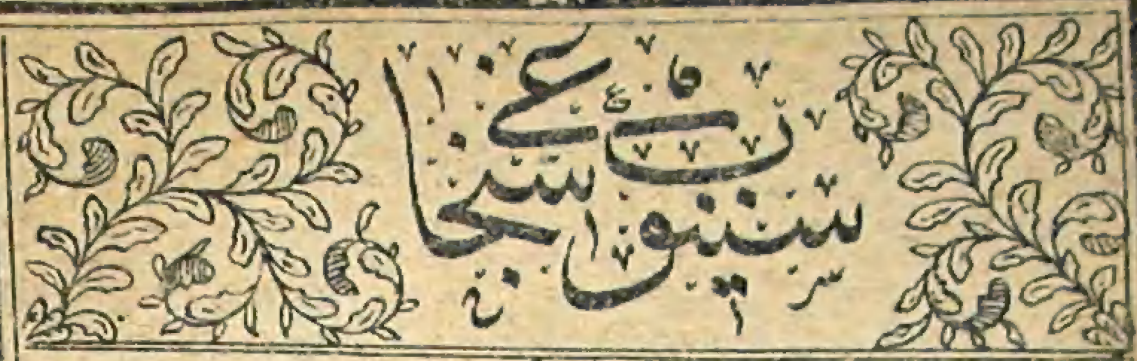 سینوب سنجاغی